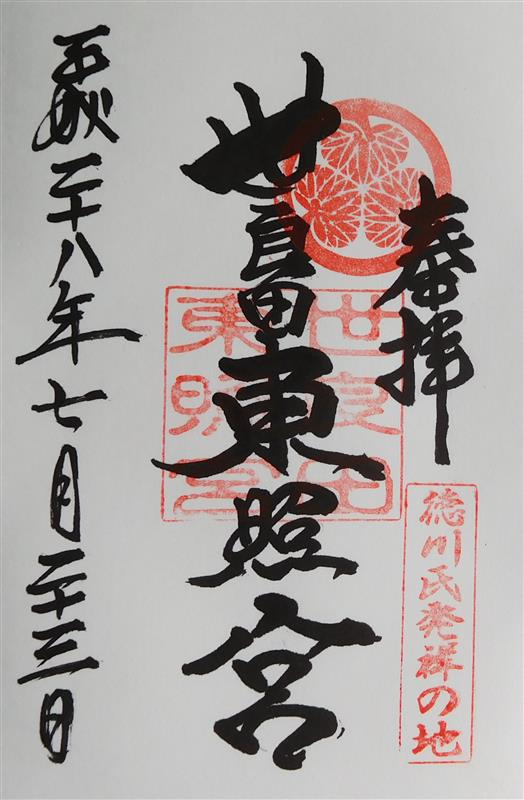 奉拝
徳川氏発祥の地
世良田東照宮
世良田
東照宮
平成二十八年七月二十三日